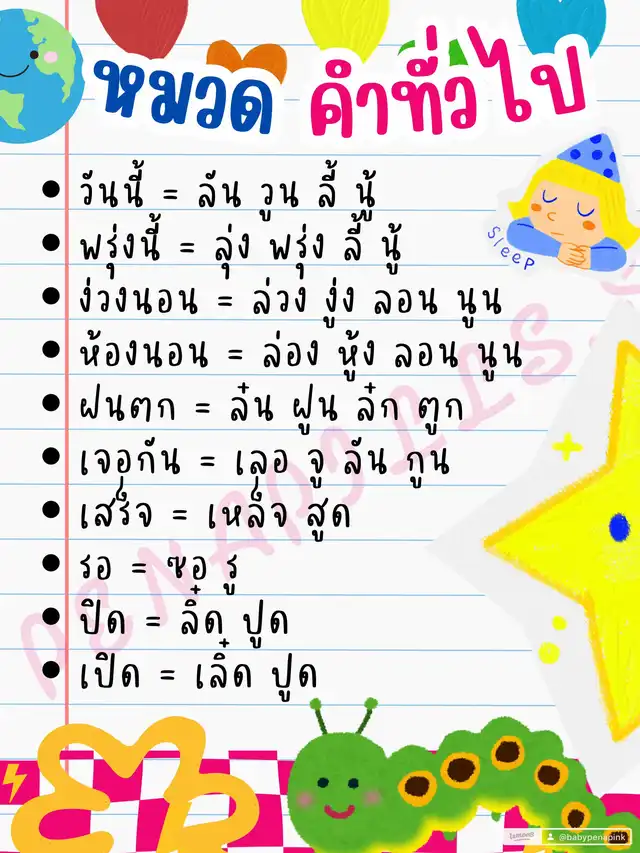 หมวด คำทั่วไป
• วันนี้ = ลัน วูน ลี้ นู้
• พรุ่งนี้ = ลุ่ง พรุ่ง ลี้ นู้
• ง่วงนอน = ล่วง งู่ง ลอน นูน
• ห้องนอน = ล่อง หู้ง ลอน นูน
• ฝนตก = ล๋น ฝูน ล๋ก ตูก
• เจอกัน = เลอ จู ลัน กูน
• เสร็จ = เหล็จ สูด
• รอ = ซอ รู
• ปิด = ลิ๋ด ปูด
• เปิด = เลิ๋ด ปูด
sleep
@babypenapink